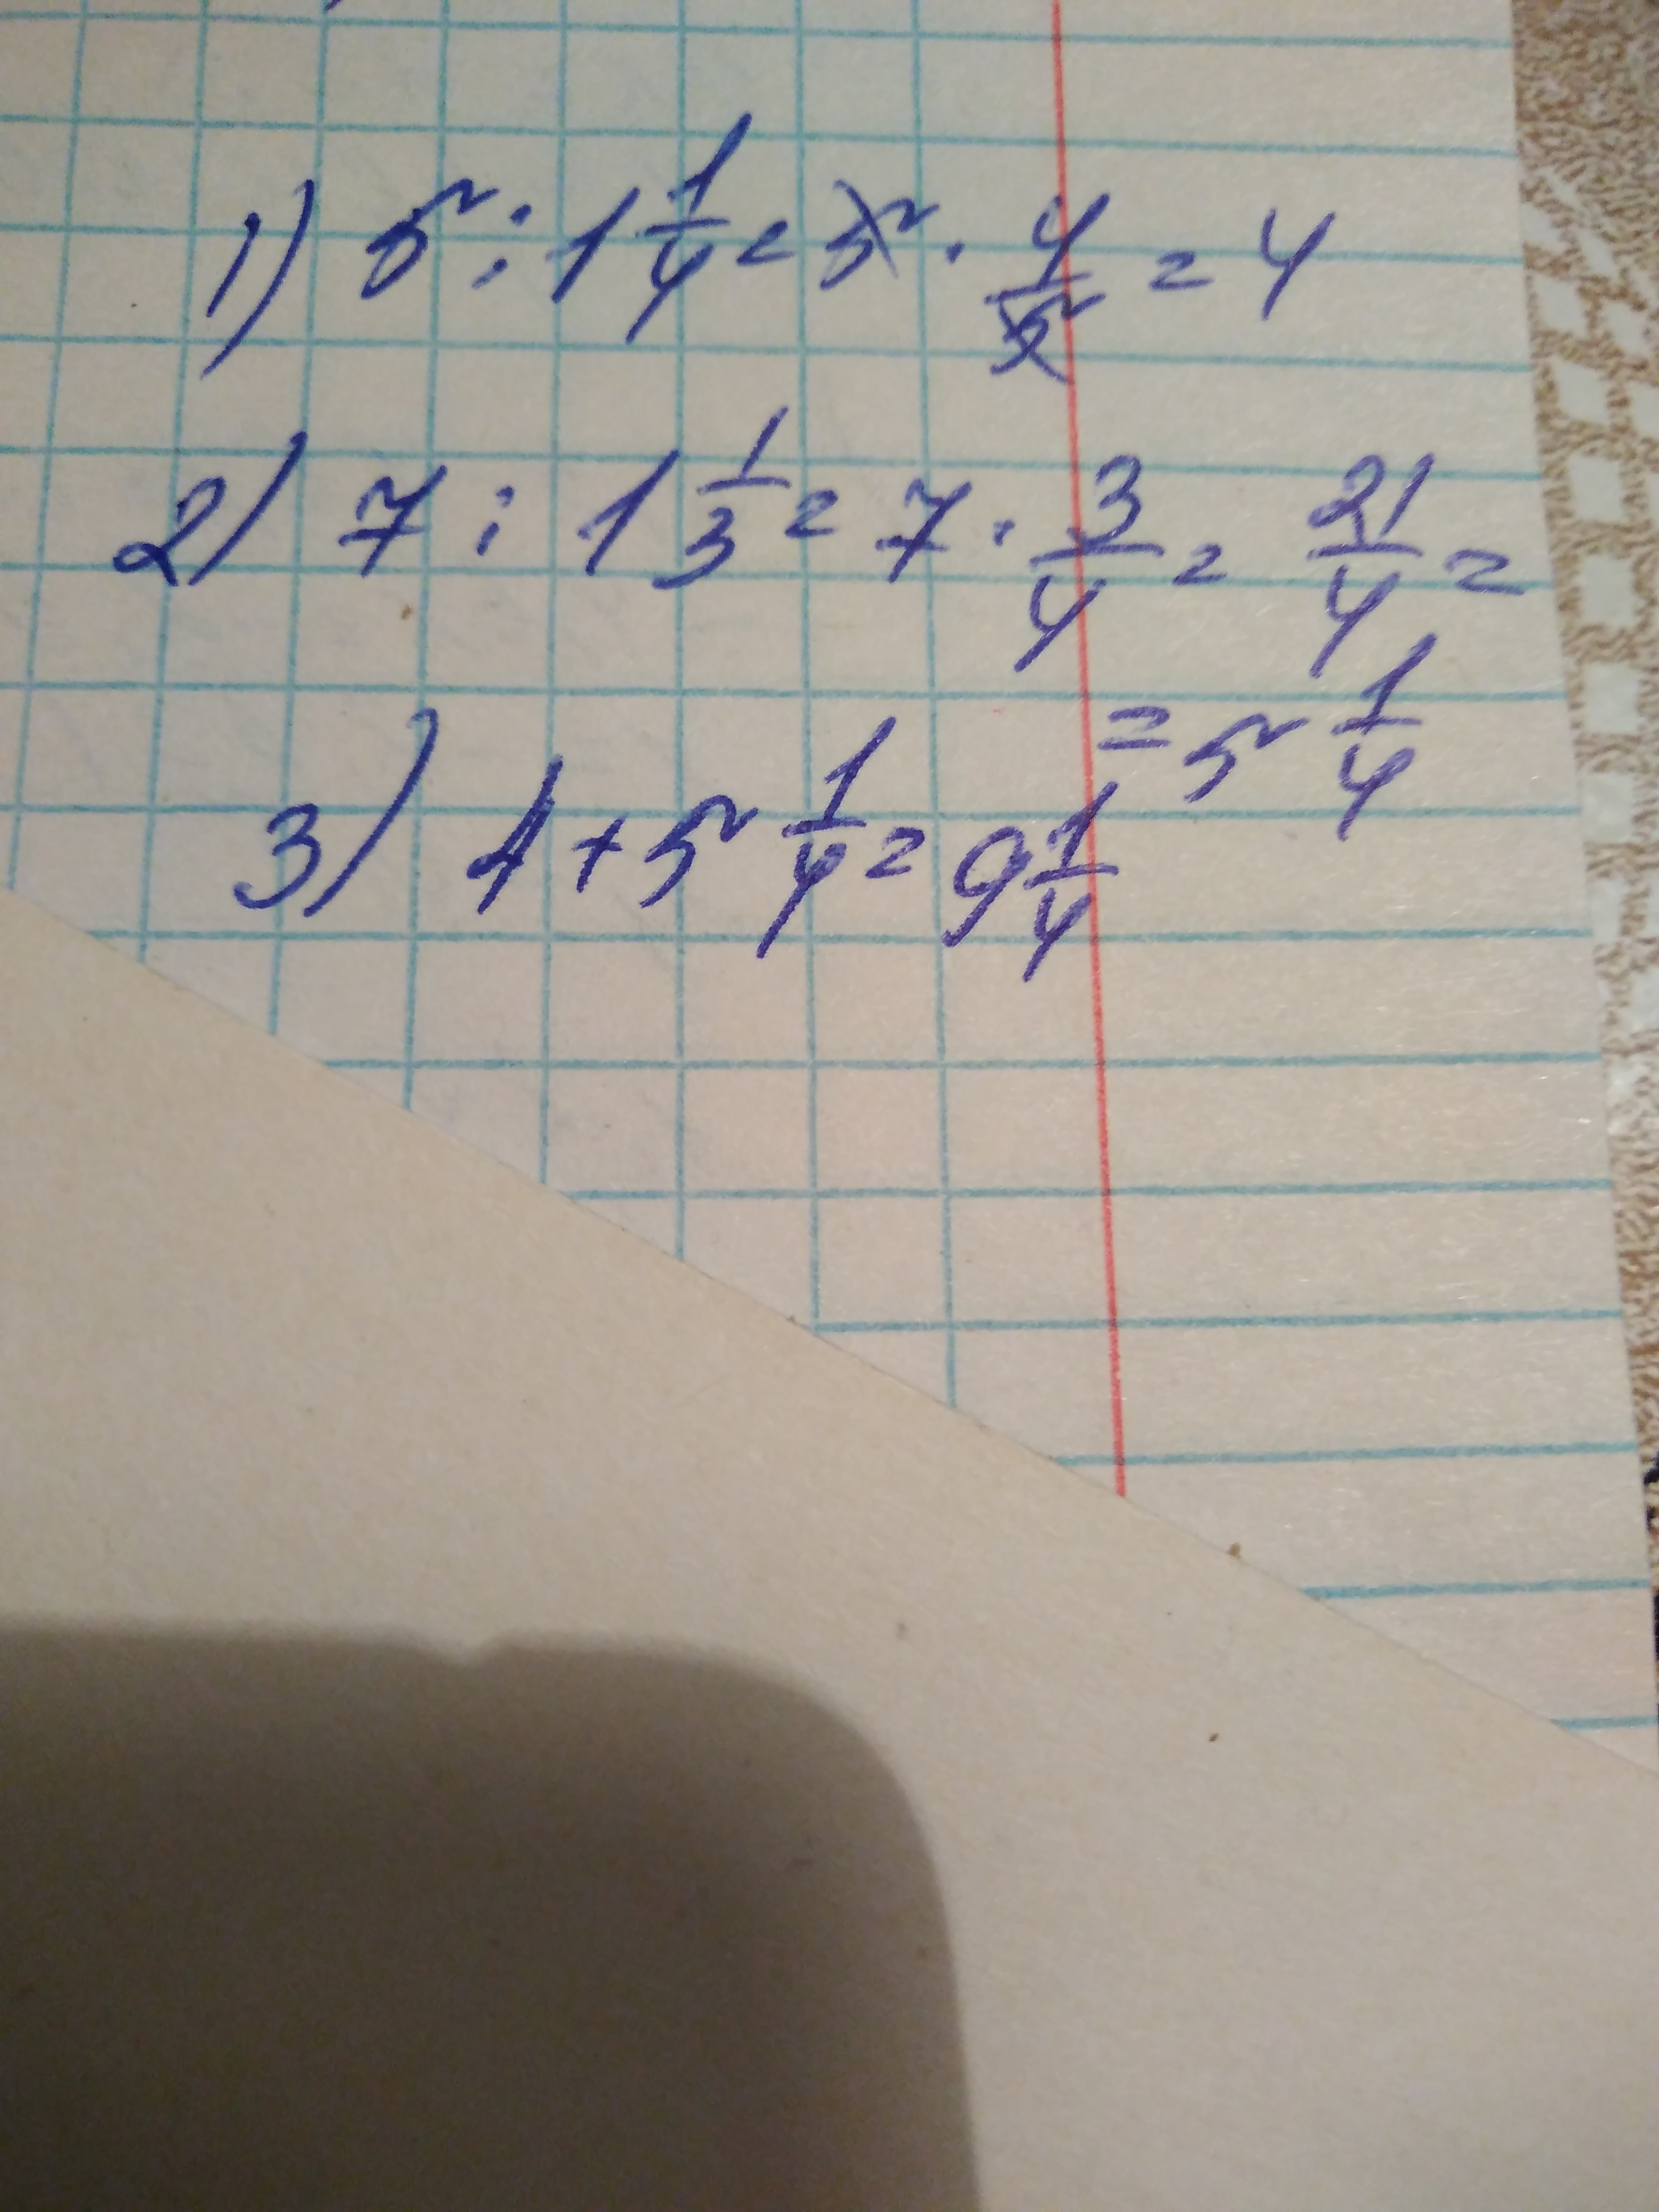 1) 5 : 1 1/4 = 5 · 4/5 = 4
2) 7 : 1 1/3 = 7 · 3/4 = 21/4 =
= 5 1/4
3) 4 + 5 1/4 = 9 1/4